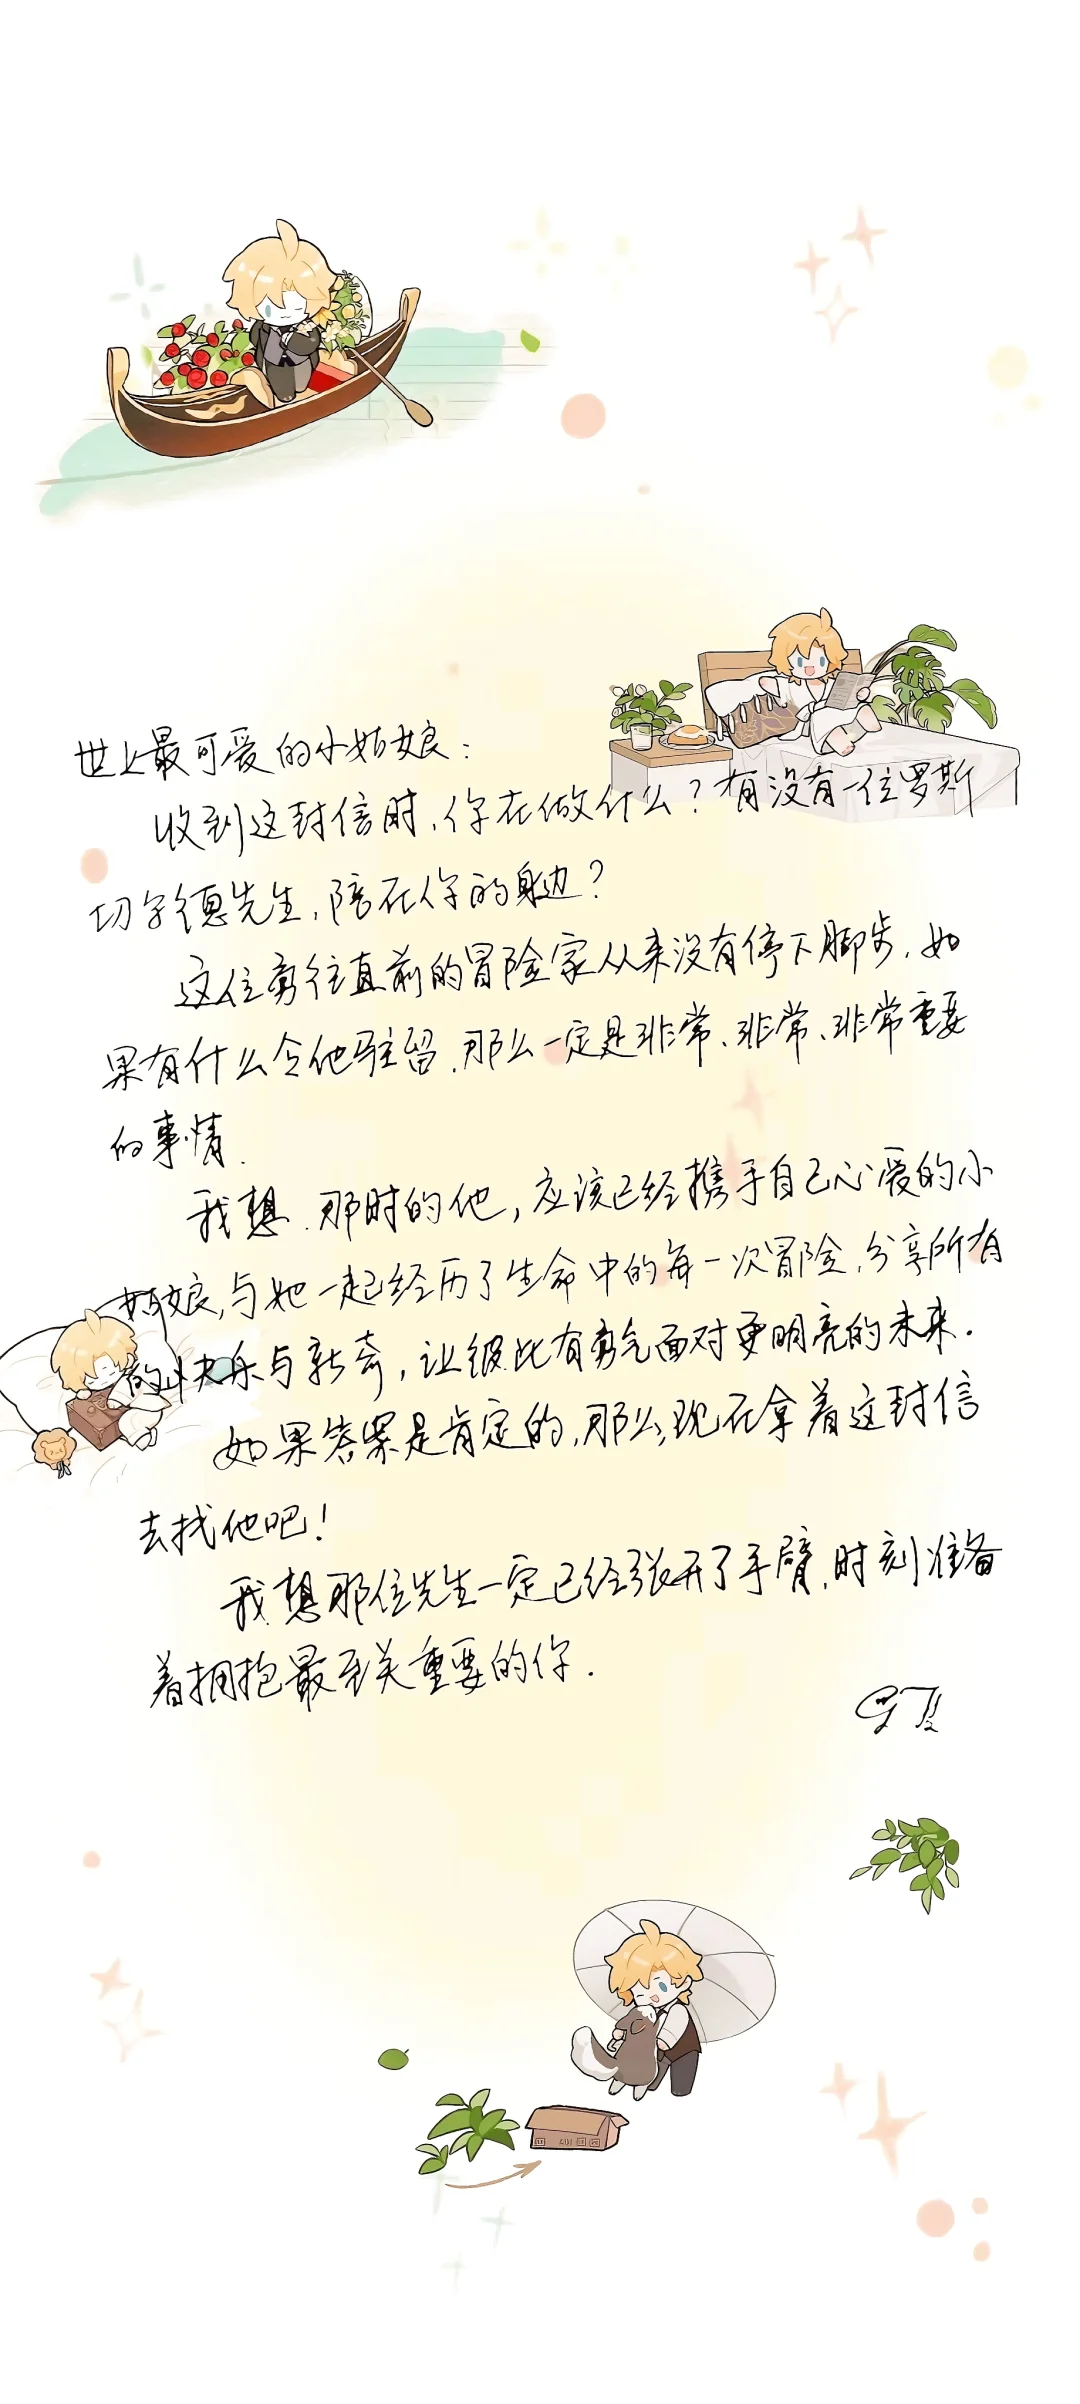 世上最可爱的小姑娘：
收到这封信时，你在做什么？有没有一位罗斯
切尔德先生，陪在你的身边？
这位勇往直前的冒险家从来没有停下脚步，如
果有什么令他驻留，那么一定是非常、非常、非常重要
的事情.
我想，那时的他，应该已经携手自己心爱的小
姑娘，与她一起经历了生命中的每一次冒险，分享所有
的快乐与新奇，让彼此有勇气面对更明亮的未来.
如果答案是肯定的，那么，现在拿着这封信
去找他吧！
我想那位先生一定已经张开了手臂，时刻准备
着拥抱最至关重要的你.